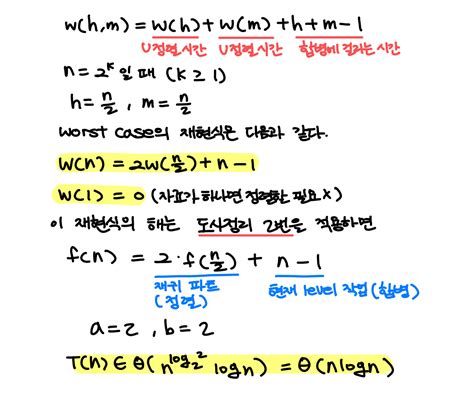 W(h,m) = W(h) + W(m) + h + m - 1
U정렬시간 U정렬시간 합병에 걸리는 시간
n = 2^k 일 때 (k ≥ 1)
h = n/2 , m = n/2
worst case의 재현식은 다음과 같다.
W(n) = 2W(n/2) + n - 1
W(1) = 0 (자료가 하나면 정렬할 필요 X)
이 재현식의 해는 도사정리 2번을 적용하면
f(n) = 2·f(n/2) + n - 1
재귀 파트 현재 level 작업 (합병)
(정렬)
a = 2 , b = 2
T(n) ∈ θ(n^log₂2 log n) = θ(n log n)